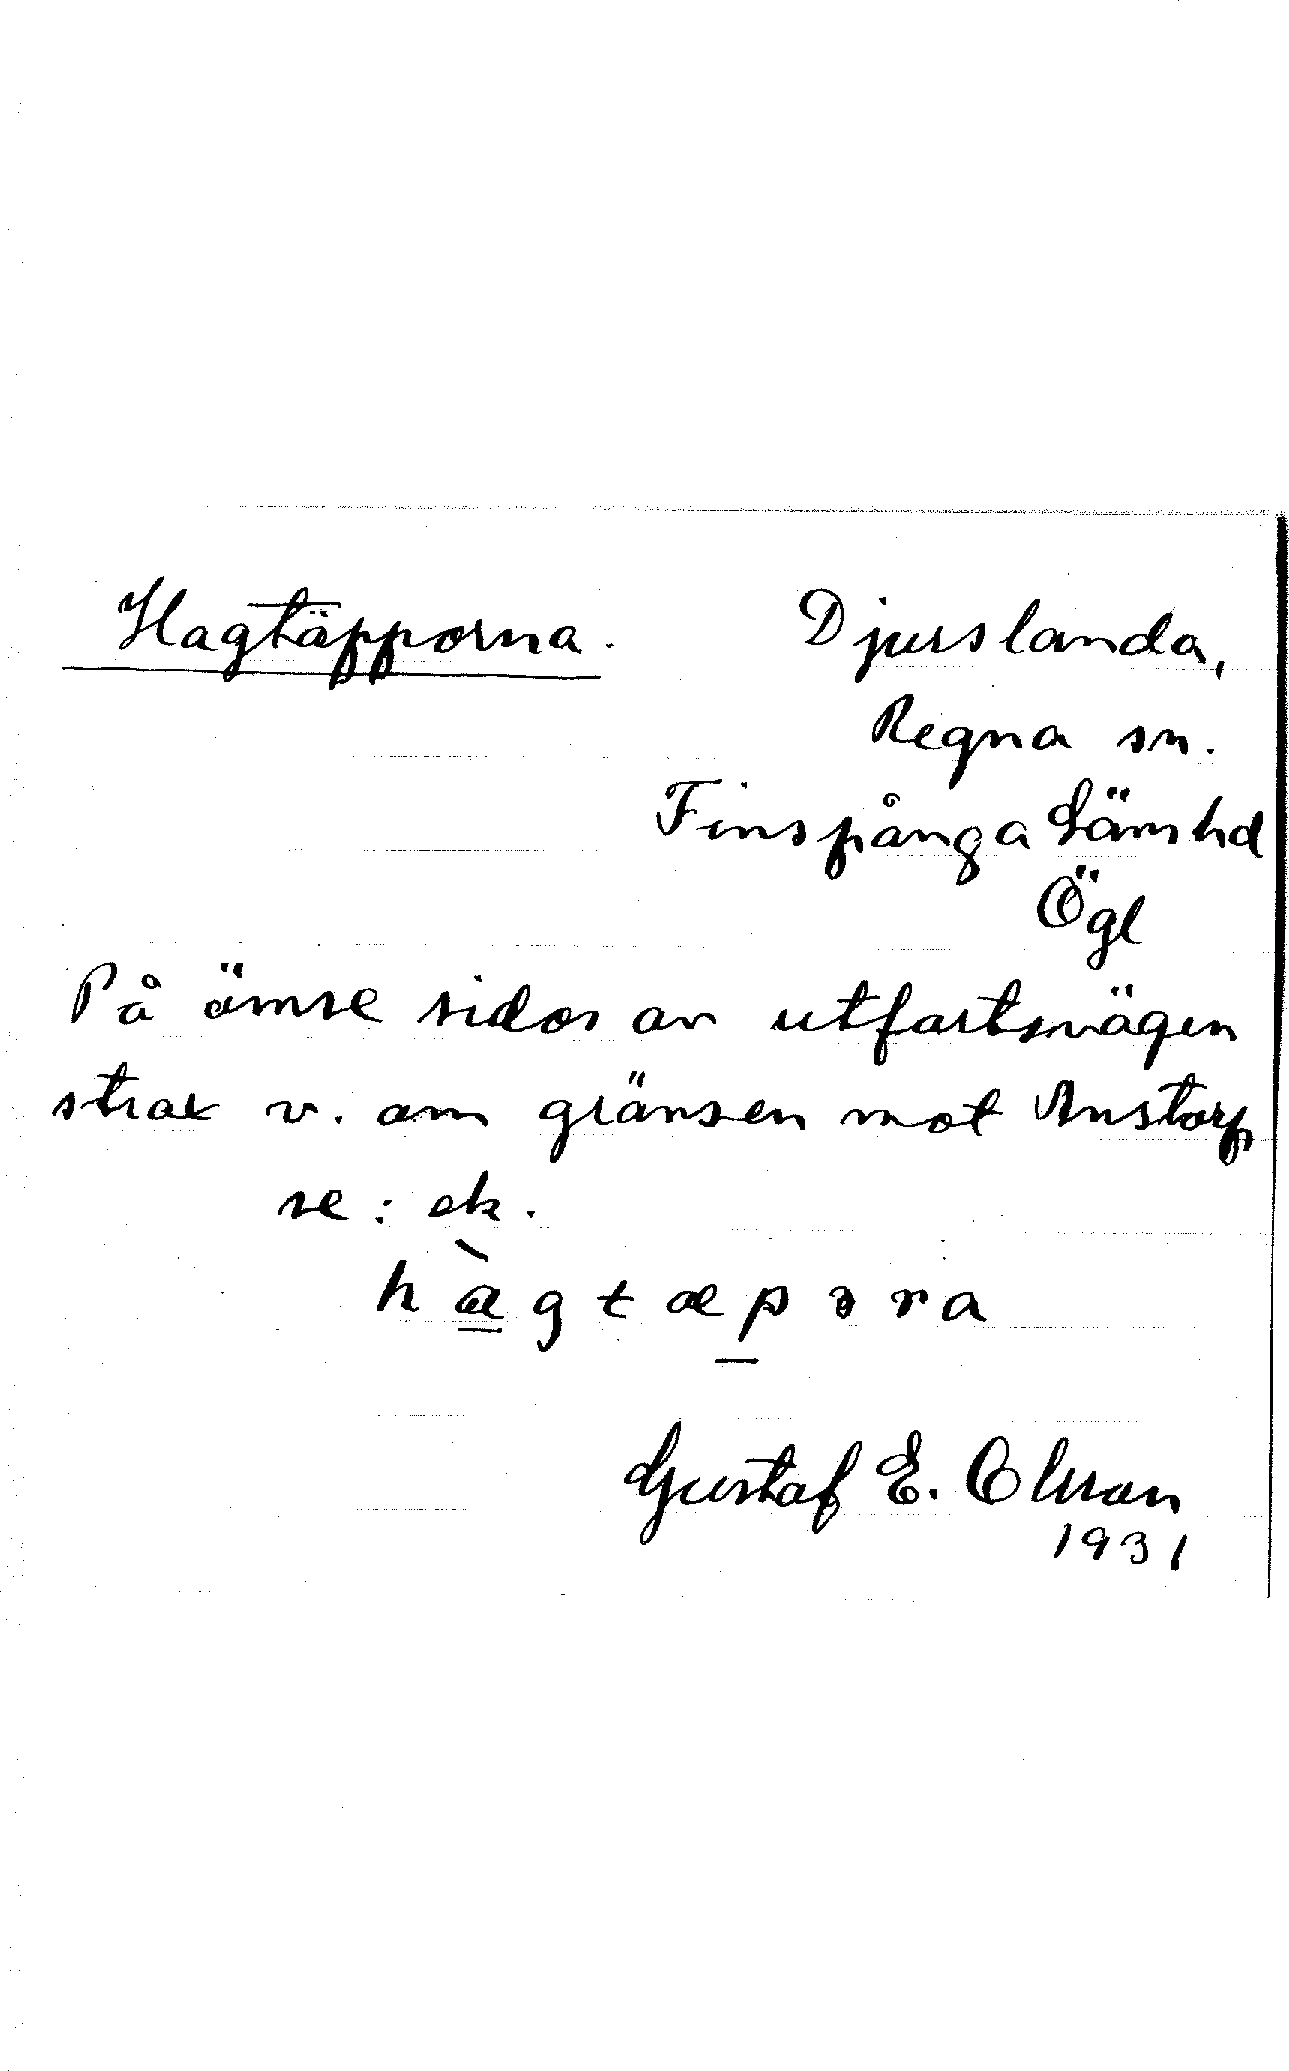 Hagtäpporna.
Djurslanda,
Regna sn.
Finspånga läns hd
Ögl
På ömse sidor av utfartsvägen
strax v. om gränsen mot Anstorp
se: ek.
hàgtæpɔra
Gustaf E. Olsson
1931